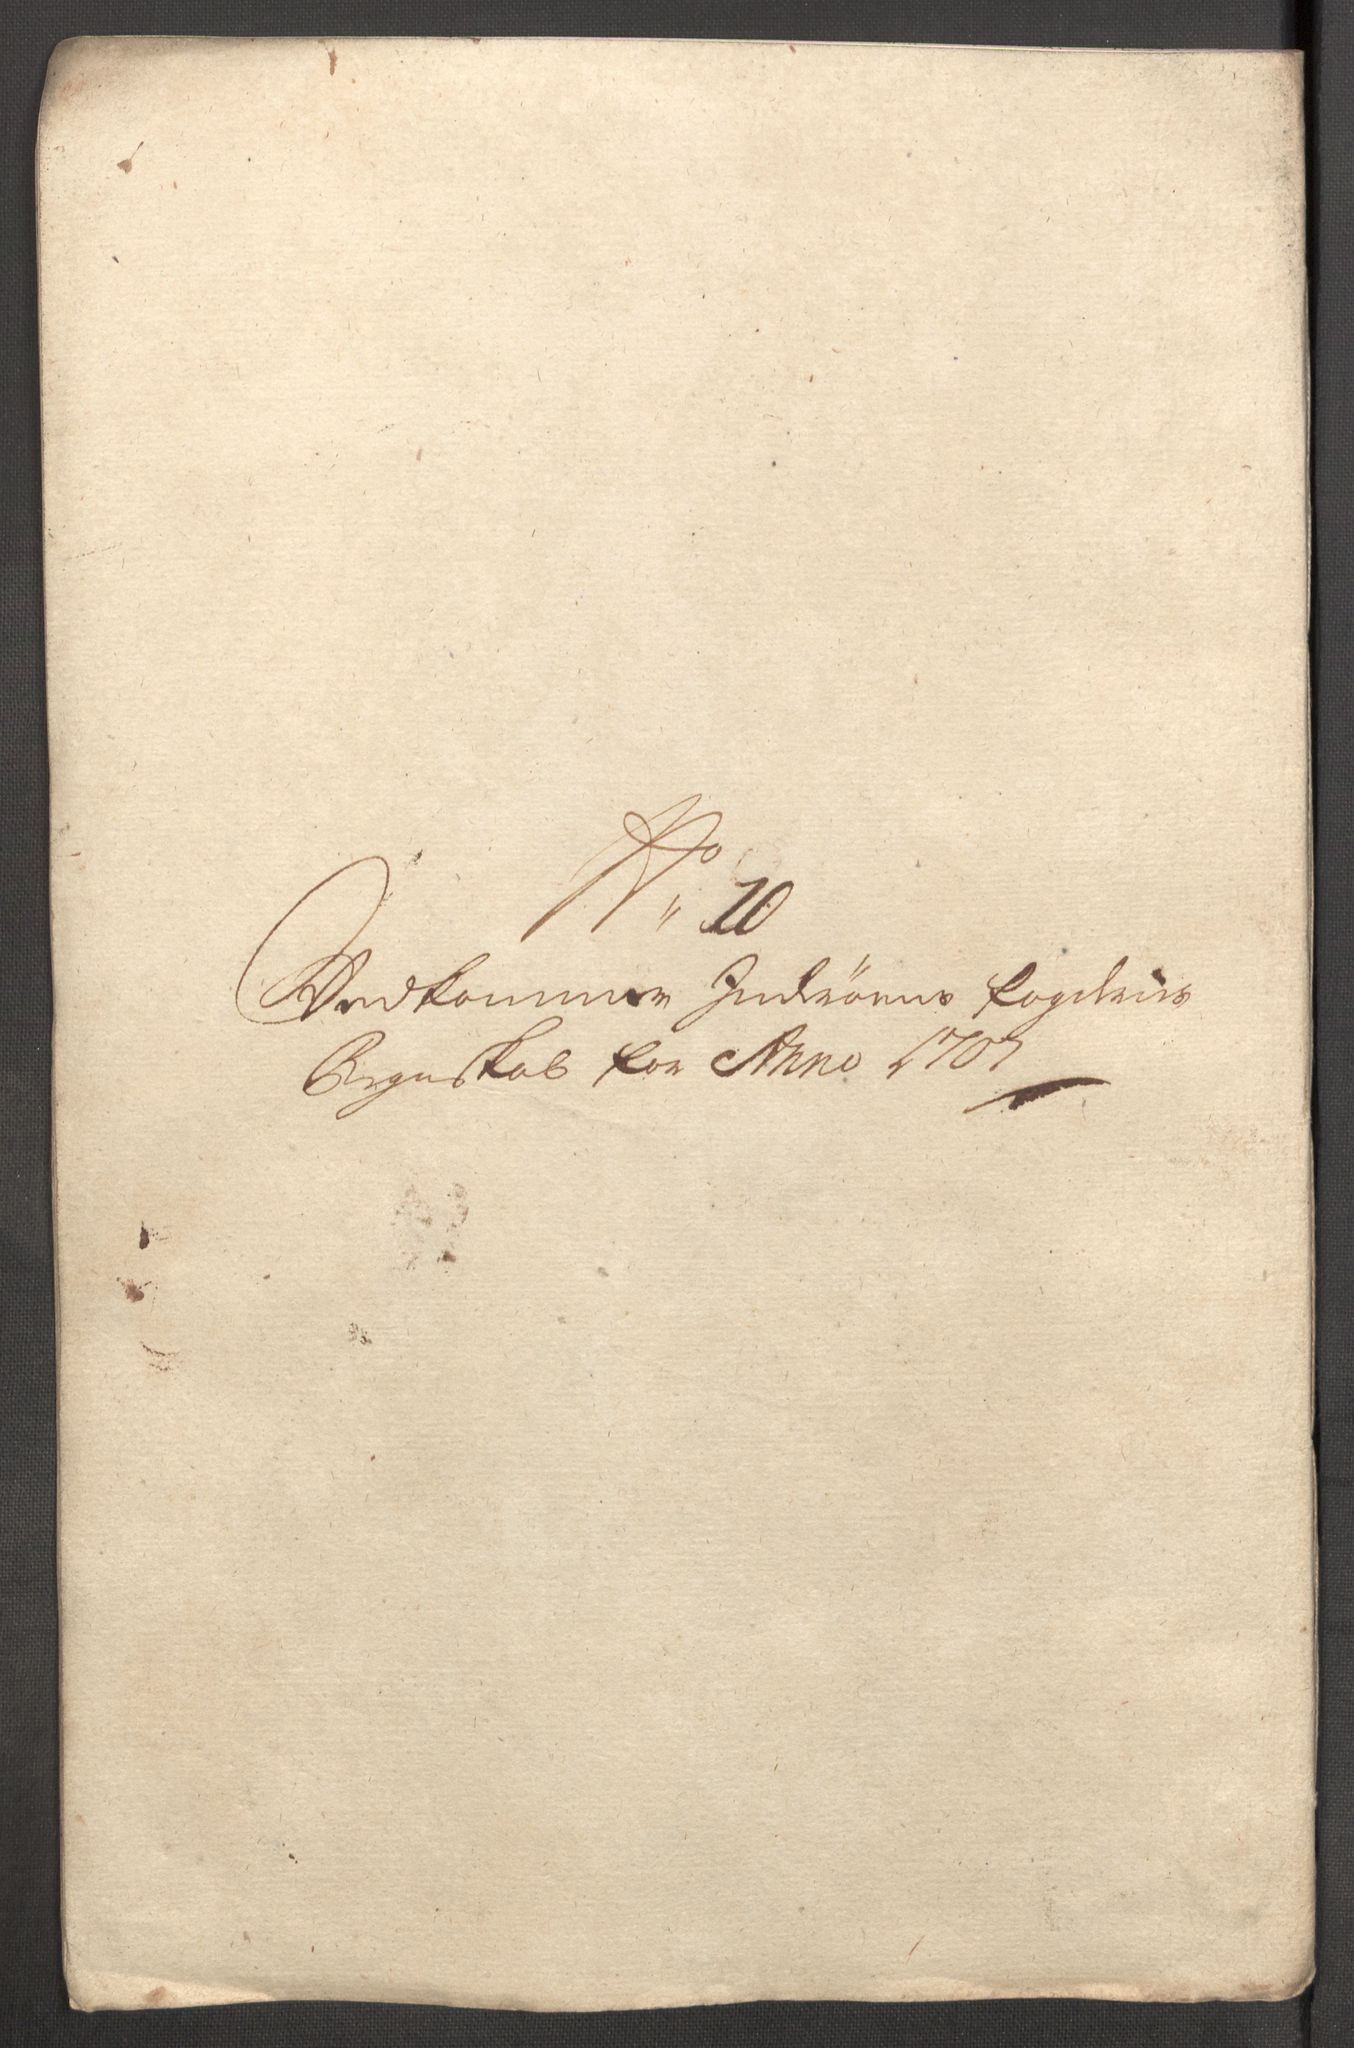 No: 10
Vedkommer Inderöens fogderies
Regnskab for Anno 1707